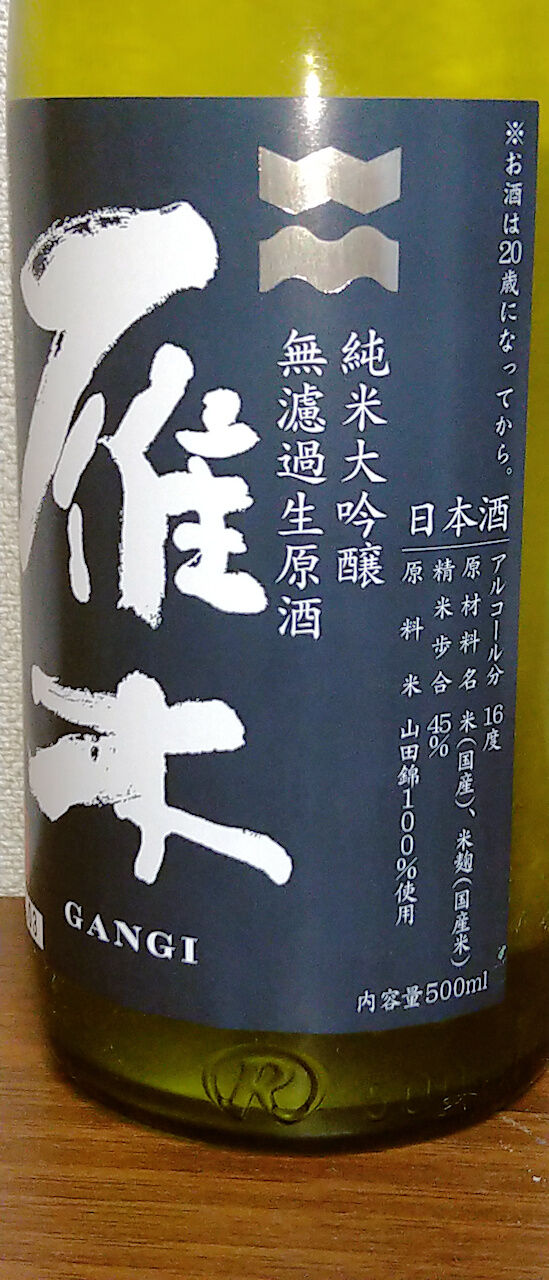 ※お酒は20歳になってから。
日本酒
アルコール分 16度
原材料名 米(国産)、米麹(国産米)
精米歩合 45%
原料米 山田錦100%使用
内容量500ml
純米大吟醸
無濾過生原酒
雁木
GANGI
R